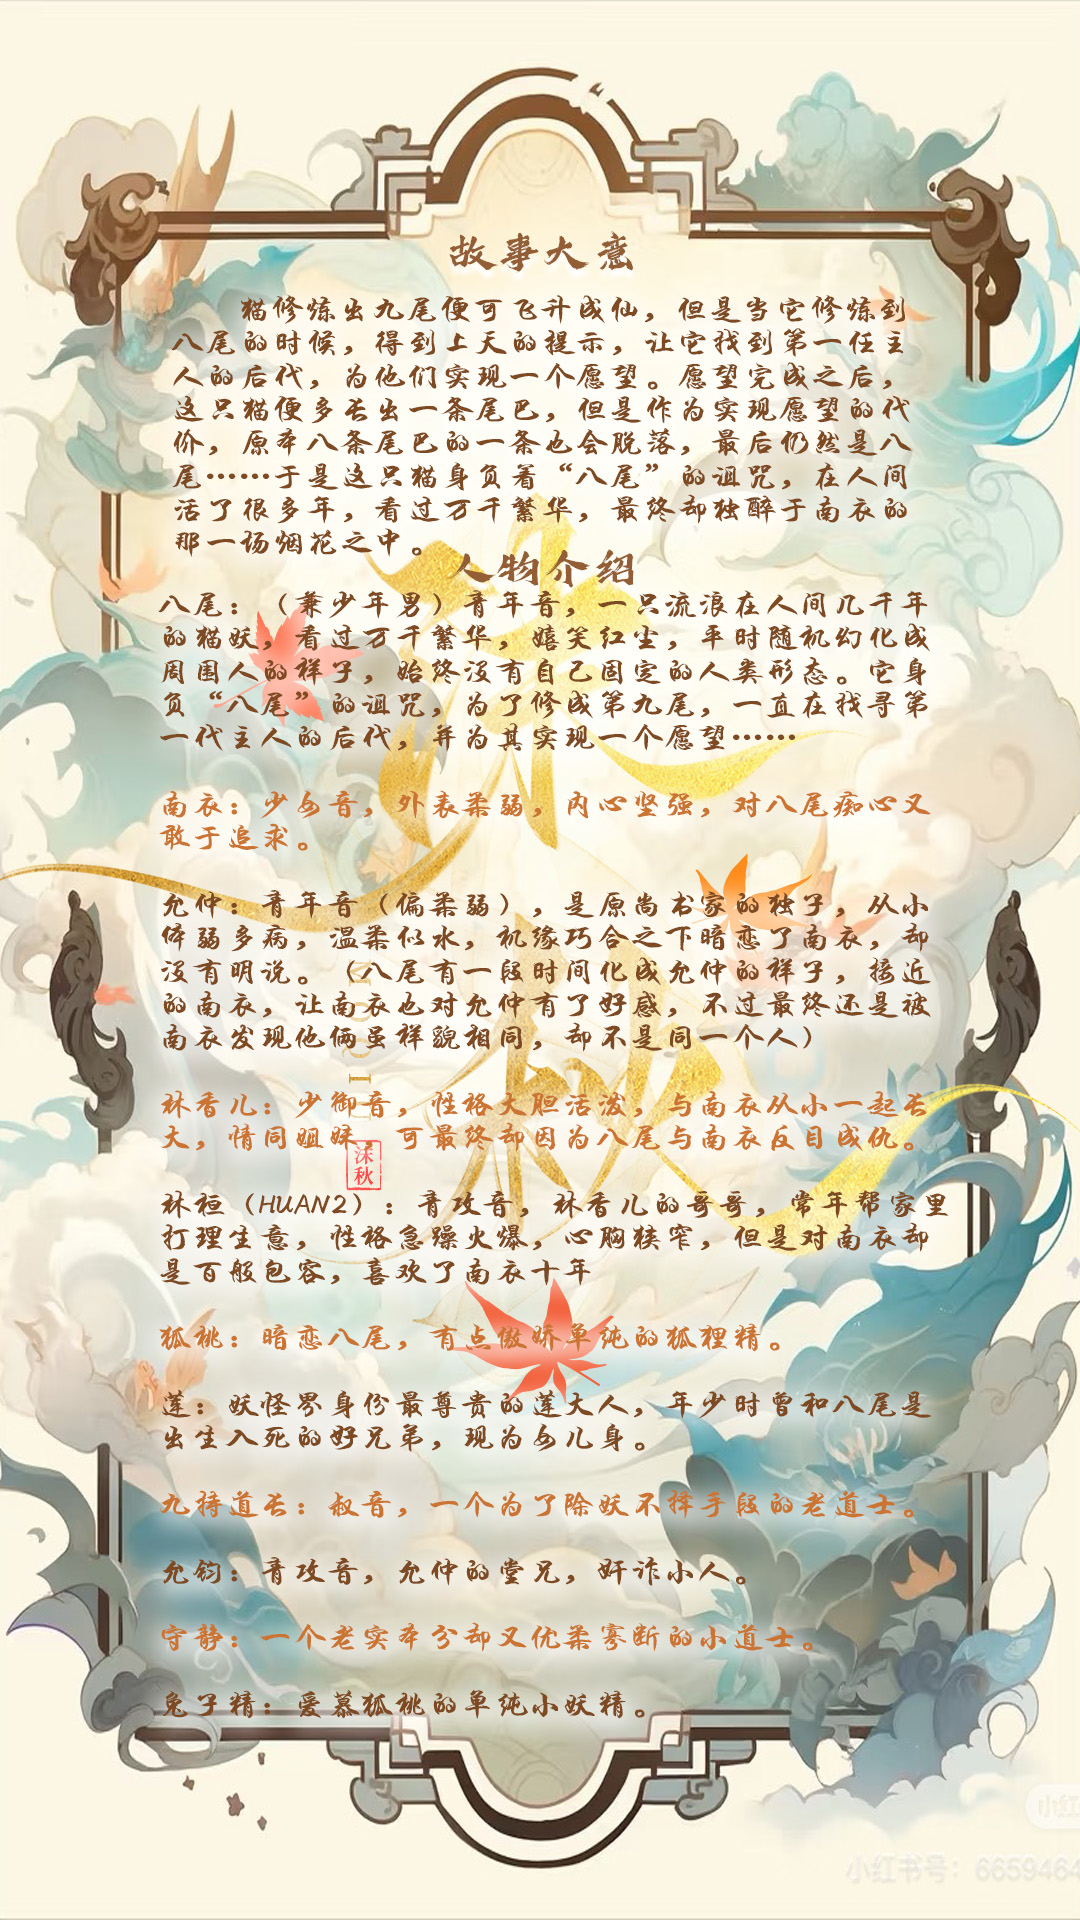 故事大意
猫修炼出九尾便可飞升成仙，但是当它修炼到
八尾的时候，得到上天的提示，让它找到第一任主
人的后代，为他们实现一个愿望。愿望完成之后，
这只猫便多长出一条尾巴，但是作为实现愿望的代
价，原本八条尾巴的一条也会脱落，最后仍然是八
尾……于是这只猫身负着“八尾”的诅咒，在人间
活了很多年，看过万千繁华，最终却独醉于南衣的
那一场烟花之中。
人物介绍
八尾：（兼少年男）青年音，一只流浪在人间几千年
的猫妖，看过万千繁华，嬉笑红尘，平时随机幻化成
周围人的样子，始终没有自己固定的人类形态。它身
负“八尾”的诅咒，为了修成第九尾，一直在找寻第
一代主人的后代，并为其实现一个愿望……
南衣：少女音，外表柔弱，内心坚强，对八尾痴心又
敢于追求。
允仲：青年音（偏柔弱），是原尚书家的独子，从小
体弱多病，温柔似水，机缘巧合之下暗恋了南衣，却
没有明说。（八尾有一段时间化成允仲的样子，接近
的南衣，让南衣也对允仲有了好感，不过最终还是被
南衣发现他俩虽样貌相同，却不是同一个人）
林香儿：少御音，性格大胆活泼，与南衣从小一起长
大，情同姐妹，可最终却因为八尾与南衣反目成仇。
沫秋
林桓（HUAN2）：青攻音，林香儿的哥哥，常年帮家里
打理生意，性格急躁火爆，心胸狭窄，但是对南衣却
是百般包容，喜欢了南衣十年
狐桃：暗恋八尾，有点傲娇单纯的狐狸精。
莲：妖怪界身份最尊贵的莲大人，年少时曾和八尾是
出生入死的好兄弟，现为女儿身。
九持道长：叔音，一个为了除妖不择手段的老道士。
允钧：青攻音，允仲的堂兄，奸诈小人。
守静：一个老实本分却又优柔寡断的小道士。
兔子精：爱慕狐桃的单纯小妖精。
小红
小红书号：6659464